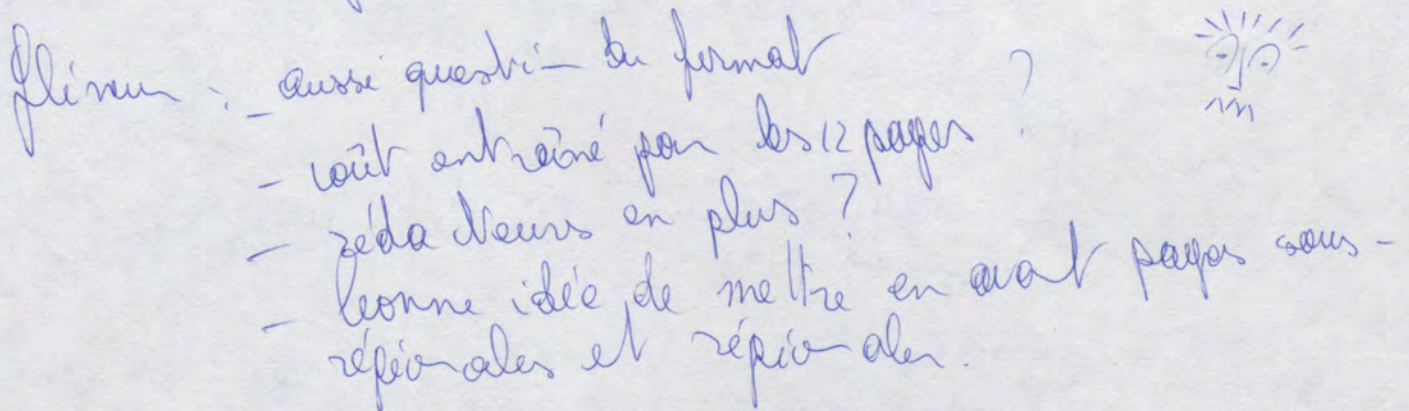 : - aussi question du format
- coût entraîné par les 12 pages ?
- rédacteurs en plus ?
- bonne idée de mettre en avant pages sous-
régionales et régionales.